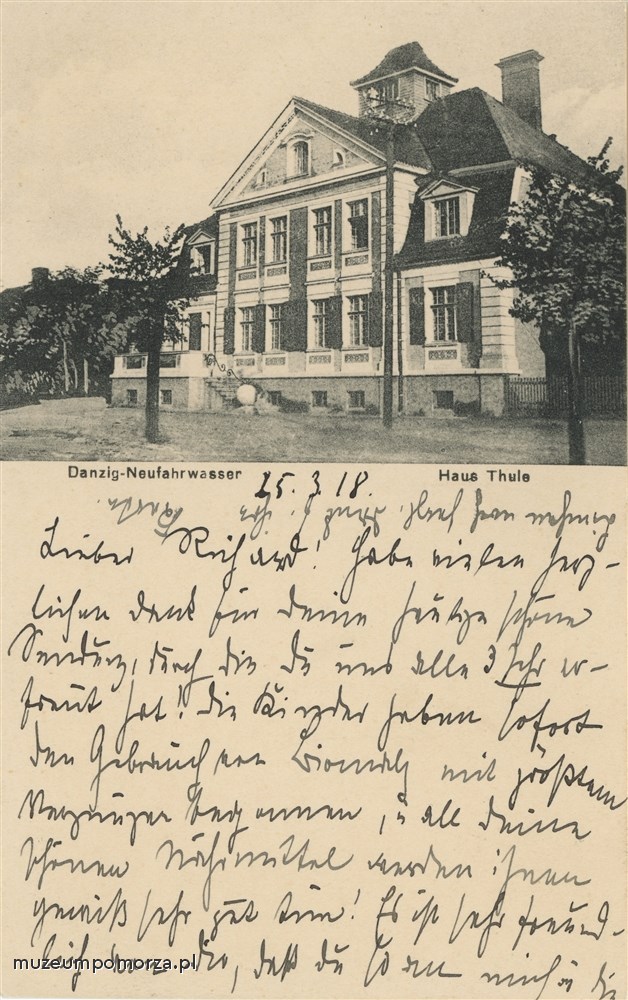 Danzig-Neufahrwasser
Haus Thule
25.3.18.
Lieber Richard! Habe vielen herz-
lichen Dank für Deine heutige schöne
Sendung, durch die Du uns alle 3 sehr er-
freut hat! Die Kinder haben sofort
den Gebrauch von Biomalz mit größtem
Vergnügen begonnen, u. all Deine
schönen Nährmittel werden ihnen
gewiß sehr gut tun! Es ist sehr freund-
lich von Dir, daß Du so an mich u. die
muzeumpomorza.pl